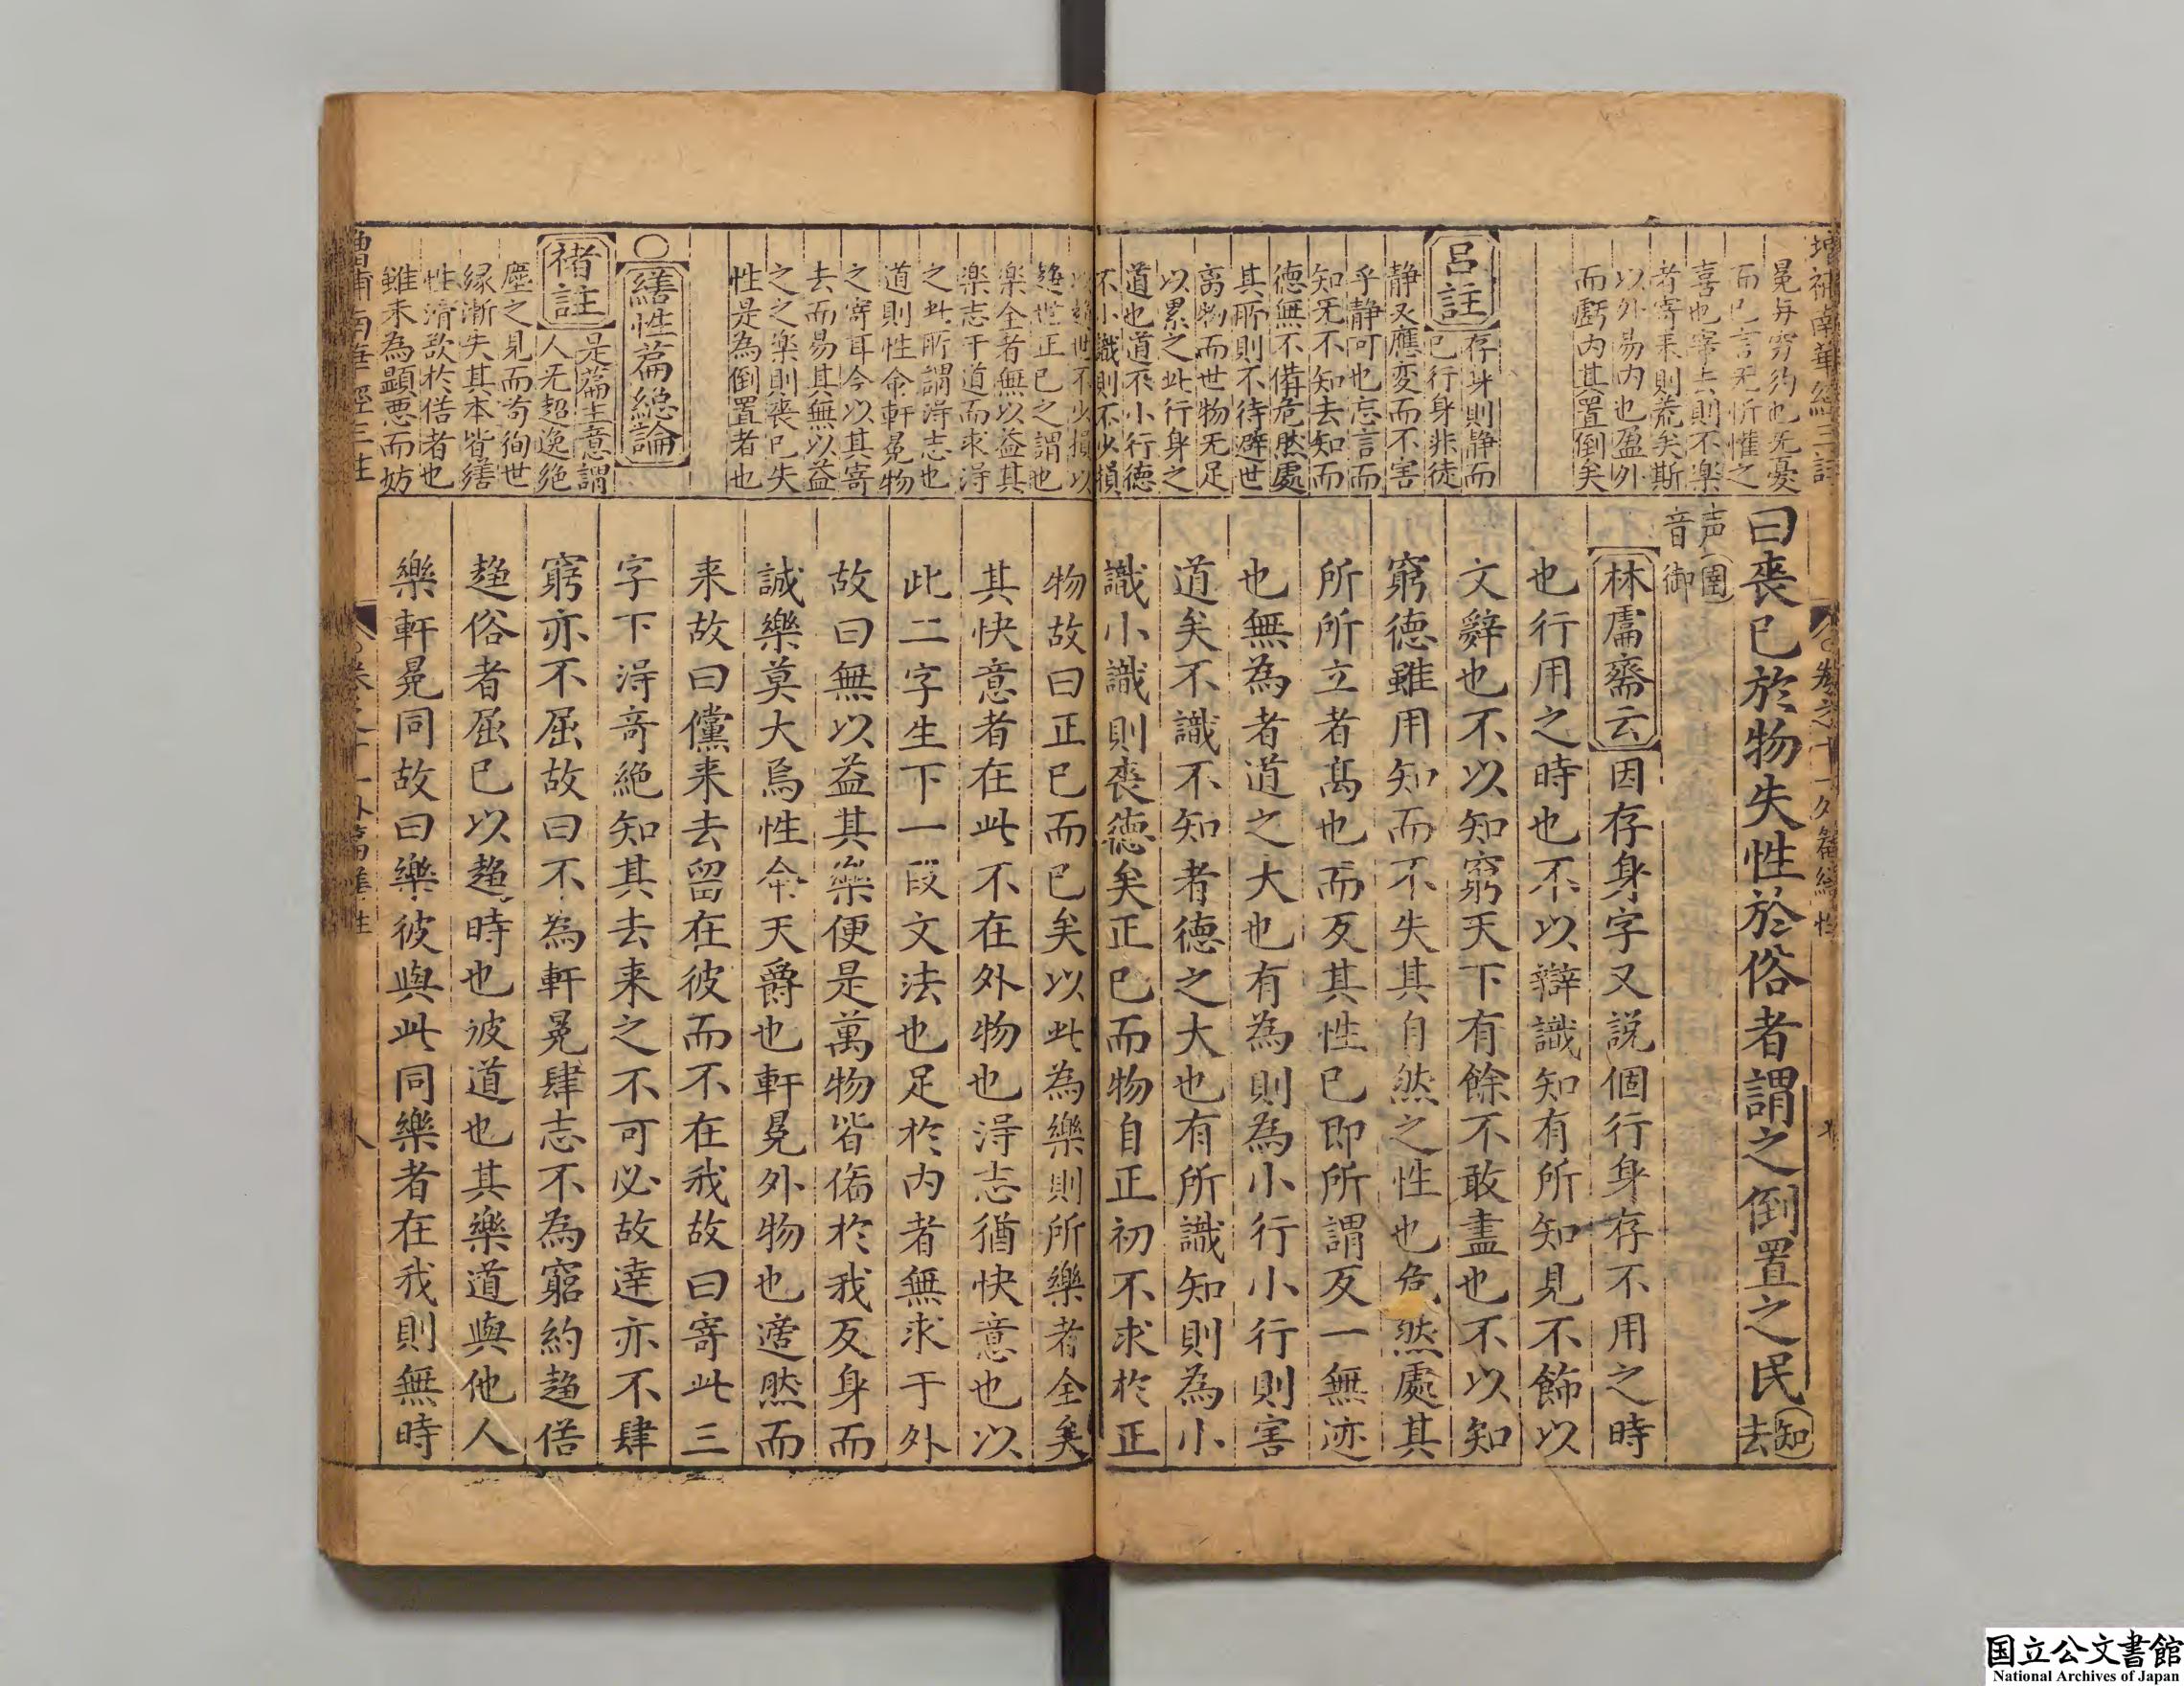 增補南華經三註
冕与穷約也旡憂
而已言旡忻懽之
喜也寄去則不楽
者寄来則荒矣斯
以外易内也盈外
而虧内其置倒矣
呂註
存身則静而
已行身非徒
静又應変而不害
乎静可也忘言而
知旡不知去知而
德無不備危然處
其所則不待避世
离物而世物旡足
以累之此行身之
道也道不小行德
不小識則不少損
曰喪已於物失性於俗者謂之倒置之民
知
去
声
圉
音御
林鬳齋云
因存身字又説個行身存不用之時
也行用之時也不以辯識知有所知見不飾以
文辭也不以知窮天下有餘不敢盡也不以知
窮德雖用知而不失其自然之性也危然處其
所所立者高也而反其性已即所謂反一無迹
也無為者道之大也有為則為小行小行則害
道矣不識不知者德之大也有所識知則為小
識小識則喪德矣正已而物自正初不求於正
以
趋世正已之謂也
楽全者無以益其
楽志于道而求淂
之此所謂淂志也
道則性命軒冕物
之寄耳今以其寄
去而易其無以益
之之楽則喪已失
性是為倒置者也
○
繕性篇緫論
禇註
是篇主意謂
人旡超逸绝
塵之見而苟徇世
縁漸失其本皆繕
性滑欲於俗者也
雖未為顯悪而妨
物故曰正已而已矣以此為樂則所樂者全矣
其快意者在此不在外物也淂志猶快意也以
此二字生下一段文法也足於内者無求于外
故曰無以益其樂便是萬物皆俻於我反身而
誠樂莫大焉性命天爵也軒冕外物也適然而
来故曰儻来去留在彼而不在我故曰寄此三
字下淂奇絶知其去来之不可必故達亦不肆
窮亦不屈故曰不為軒冕肆志不為窮約趋俗
趋俗者屈已以趋時也彼道也其樂道與他人
樂軒冕同故曰樂彼與此同樂者在我則無時
国立公文書館
National Archives of Japan